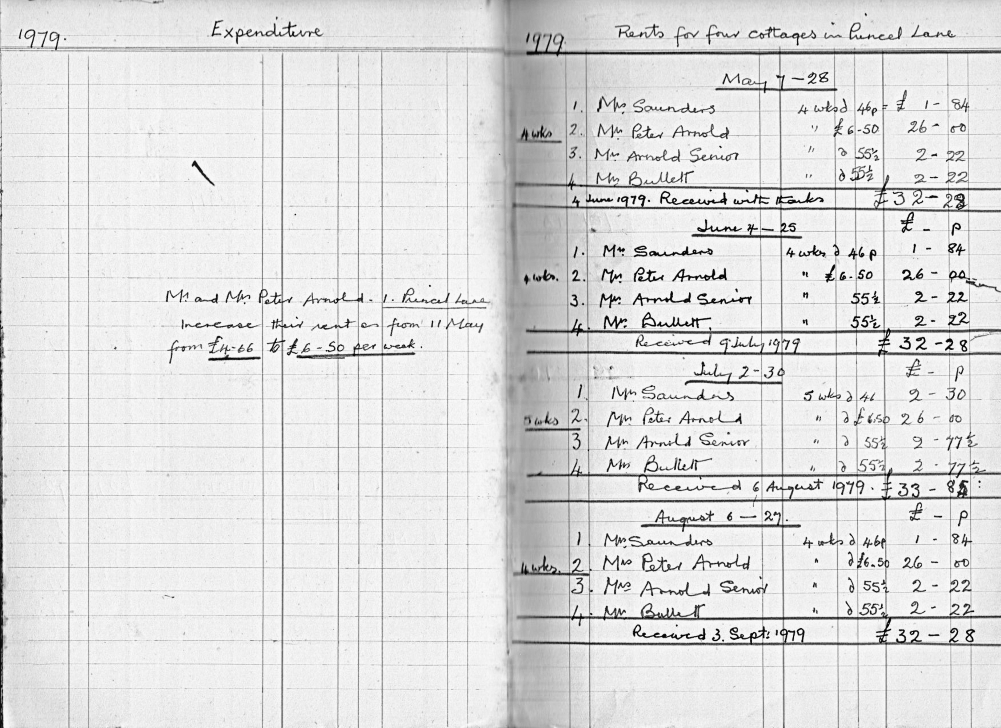 1979.
Expenditure
Mr and Mrs Peter Arnold - 1. Princel Lane
Increase their rent as from 11 May
from £4-66 to £6-50 per week.
1979. Rents for four cottages in Princel Lane
May 7-28
1. Mrs Saunders 4 wks @ 46p = £ 1 - 84
4 wks 2. Mrs Peter Arnold " £6-50 26 - 00
3. Mrs Arnold Senior " @ 55½ 2 - 22
4 Mrs Bullett " @ 55½ 2 - 22
4 June 1979. Received with thanks £32-28
June 4-25 £ - p
1. Mrs Saunders 4 wks @ 46p 1 - 84
4 wks. 2. Mrs Peter Arnold " £6.50 26 - 00
3. Mrs Arnold Senior " 55½ 2 - 22
4. Mrs Bullett. " 55½ 2 - 22
Received 9 July 1979 £32-28
July 2-30 £ - p
1. Mrs Saunders 5 wks @ 46 2 - 30
5 wks 2. Mrs Peter Arnold " @ £6.50 26 - 00
3 Mrs Arnold Senior " @ 55½ 2 - 77½
4 Mrs Bullett " @ 55½ 2 - 77½
Received 6 August 1979. £33-85
August 6-27. £ - p
1 Mrs Saunders 4 wks @ 46p 1 - 84
4 wks. 2. Mrs Peter Arnold " @ £6.50 26 - 00
3. Mrs Arnold Senior " @ 55½ 2 - 22
4. Mrs Bullett " @ 55½ 2 - 22
Received 3. Sept: 1979 £32-28